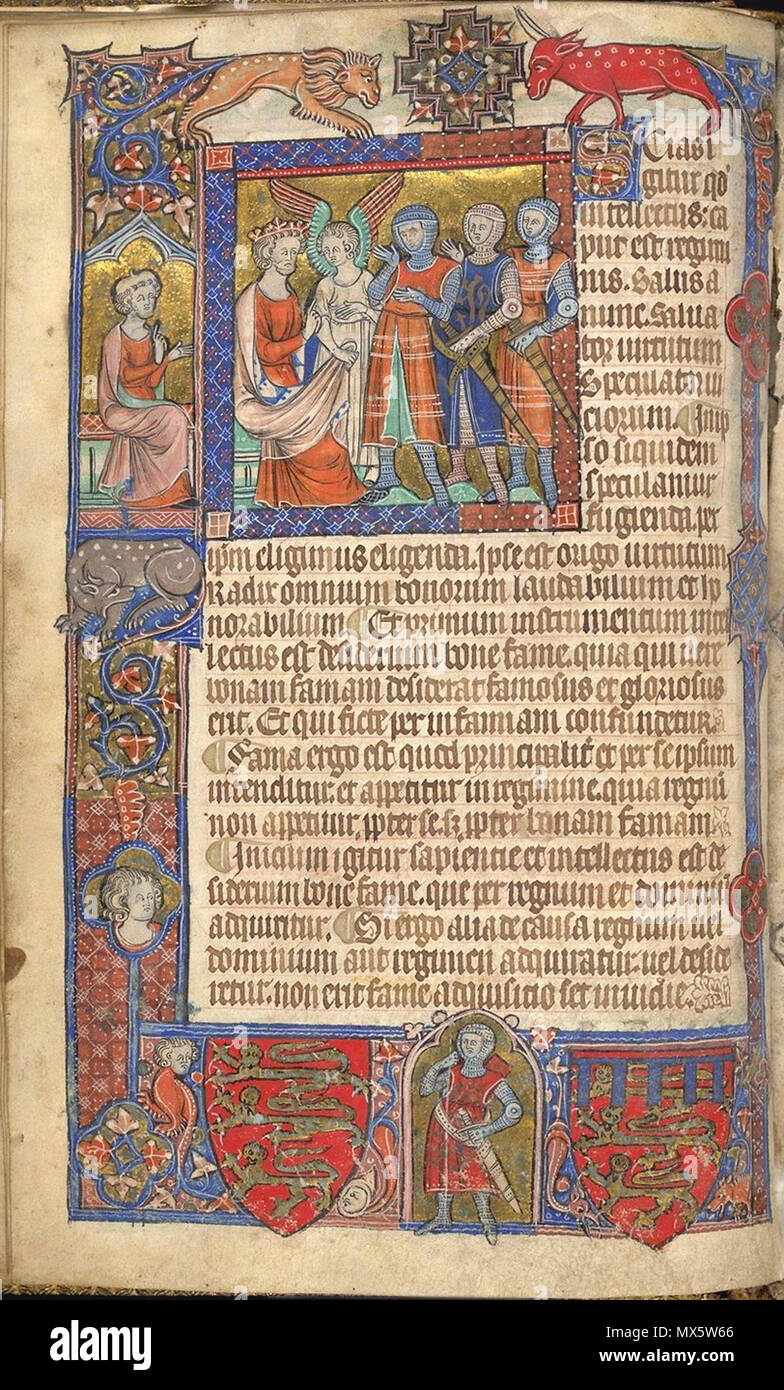 Scias i
gitur qd
intellectus: ca
put est regimi
nis. Salus a
nime. Salua
tor uirtutum
Speculator ui
ciorum. Inip
so siquidem
speculamur
fugienda. per
ipm eligimus eligenda. ipse est origo uirtutum
Radix omnium bonorum laudabilium et ho
norabilium Et primum instrumentum intel
lectus est desiderium bone fame. quia qui uere
bonam famam desiderat famosus et gloriosus
erit. Et qui ficte per infamiam confundetur.
Fama ergo est quod principalit et per se ipsum
intenditur et appetitur in regimine. quia regnu
non appetitur ppter se. s; ppter bonam famam
Inicium igitur sapientie et intellectus est de
siderium bone fame. que per regnum et dominiu
adquiritur. Si ergo alia de causa regnum uel
dominium aut regimen adquiratur. uel deside
retur. non erit fame adquisitio set inuidie.
alamy
Image ID: MX5W66
www.alamy.com